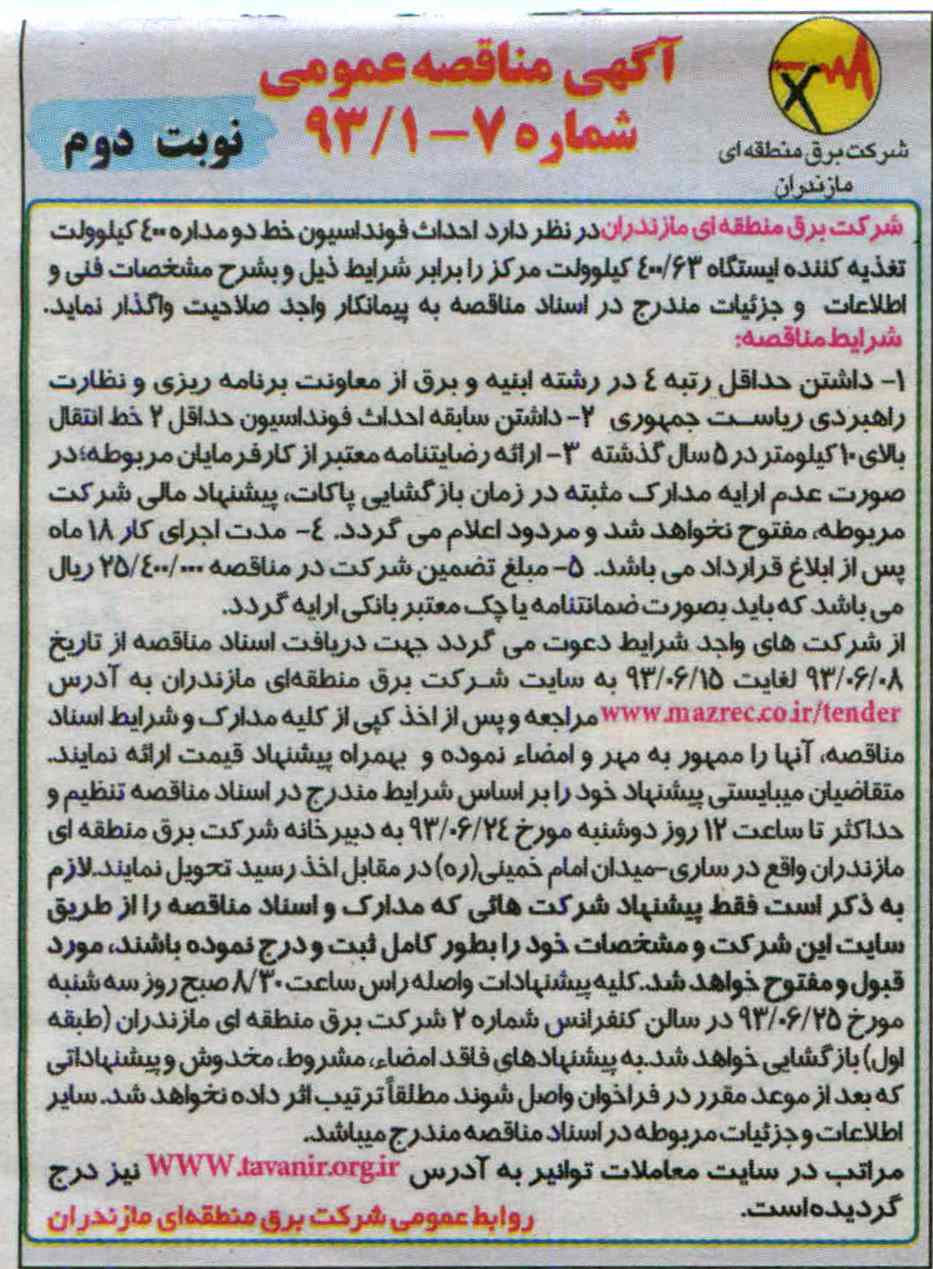 آگهی مناقصه عمومی
شماره ۷-۹۳/۱
نوبت دوم
شرکت برق منطقه ای
مازندران
شرکت برق منطقه ای مازندران در نظر دارد احداث فونداسیون خط دو مداره ٤۰۰ کیلوولت
تغذیه کننده ایستگاه ٤۰۰/۶۳ کیلوولت مرکز را برابر شرایط ذیل و بشرح مشخصات فنی و
اطلاعات و جزئیات مندرج در اسناد مناقصه به پیمانکار واجد صلاحیت واگذار نماید.
شرایط مناقصه:
۱- داشتن حداقل رتبه ٤ در رشته ابنیه و برق از معاونت برنامه ریزی و نظارت
راهبردی ریاست جمهوری ۲- داشتن سابقه احداث فونداسیون حداقل ۲ خط انتقال
بالای ۱۰ کیلومتر در ۵ سال گذشته ۳- ارائه رضایتنامه معتبر از کارفرمایان مربوطه؛ در
صورت عدم ارایه مدارک مثبته در زمان بازگشایی پاکات، پیشنهاد مالی شرکت
مربوطه، مفتوح نخواهد شد و مردود اعلام می گردد. ٤- مدت اجرای کار ۱۸ ماه
پس از ابلاغ قرارداد می باشد. ۵- مبلغ تضمین شرکت در مناقصه ۲۵/٤۰۰/۰۰۰ ریال
می باشد که باید بصورت ضمانتنامه یا چک معتبر بانکی ارایه گردد.
از شرکت های واجد شرایط دعوت می گردد جهت دریافت اسناد مناقصه از تاریخ
۹۳/۰۶/۰۸ لغایت ۹۳/۰۶/۱۵ به سایت شرکت برق منطقه‌ای مازندران به آدرس
www.mazrec.co.ir/tender مراجعه و پس از اخذ کپی از کلیه مدارک و شرایط اسناد
مناقصه، آنها را ممهور به مهر و امضاء نموده و بهمراه پیشنهاد قیمت ارائه نمایند.
متقاضیان میبایستی پیشنهاد خود را بر اساس شرایط مندرج در اسناد مناقصه تنظیم و
حداکثر تا ساعت ۱۲ روز دوشنبه مورخ ۹۳/۰۶/۲٤ به دبیرخانه شرکت برق منطقه ای
مازندران واقع در ساری-میدان امام خمینی(ره) در مقابل اخذ رسید تحویل نمایند. لازم
به ذکر است فقط پیشنهاد شرکت هائی که مدارک و اسناد مناقصه را از طریق
سایت این شرکت و مشخصات خود را بطور کامل ثبت و درج نموده باشند، مورد
قبول و مفتوح خواهد شد. کلیه پیشنهادات واصله راس ساعت ۸/۳۰ صبح روز سه شنبه
مورخ ۹۳/۰۶/۲۵ در سالن کنفرانس شماره ۲ شرکت برق منطقه ای مازندران (طبقه
اول) بازگشایی خواهد شد. به پیشنهادهای فاقد امضاء، مشروط، مخدوش و پیشنهاداتی
که بعد از موعد مقرر در فراخوان واصل شوند مطلقاً ترتیب اثر داده نخواهد شد. سایر
اطلاعات و جزئیات مربوطه در اسناد مناقصه مندرج میباشد.
مراتب در سایت معاملات توانیر به آدرس WWW.tavanir.org.ir نیز درج
گردیده‌است.
روابط عمومی شرکت برق منطقه‌ای مازندران